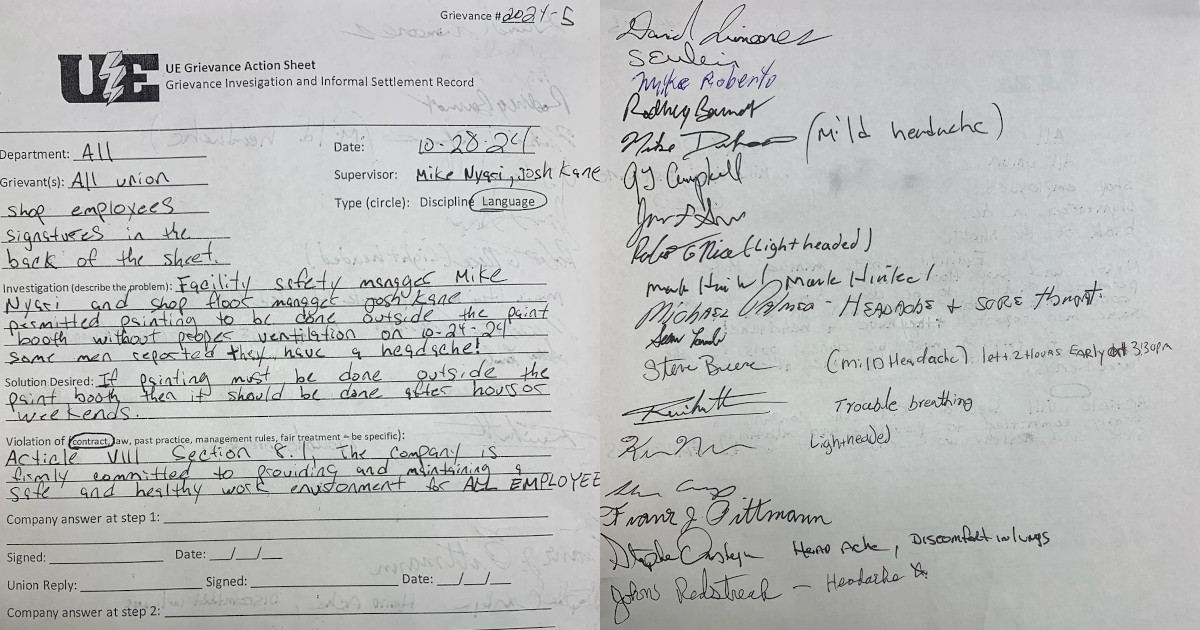 Grievance #2024-5
UE
UE Grievance Action Sheet
Grievance Invesigation and Informal Settlement Record
Department: All
Date: 10-28-24
Grievant(s): All union
shop employees
signatures in the
back of the sheet.
Supervisor: Mike Nygri, Josh Kane
Type (circle): Discipline Language
Investigation (describe the problem): Facility safety manager Mike
Nygri and shop floor manager Josh Kane
permitted painting to be done outside the paint
booth without proper ventilation on 10-24-24
some men reported they have a headache!
Solution Desired: If painting must be done outside the
paint booth then it should be done after hours or
weekends.
Violation of (contract, law, past practice, management rules, fair treatment – be specific):
Article VIII Section 8.1, The company is
firmly committed to providing and maintaining a
safe and healthy work environment for ALL EMPLOYEE
Company answer at step 1:
Signed: Date: __/__/__
Union Reply: Signed: Date: __/__/__
Company answer at step 2:
David Limones
Mike Roberto
Rodney
Mike (Mild headache)
Campbell
Robert G Nice (Lightheaded)
Mark
Michael - HEADACHE + SORE throat.
Sean
Steve (Mild Headache) left 2 Hours EARLY at 3:30pm
Trouble breathing
Lightheaded
Franz J. Pittmann
Head Ache, Discomfort in lungs
Johns Redstreak - Headache